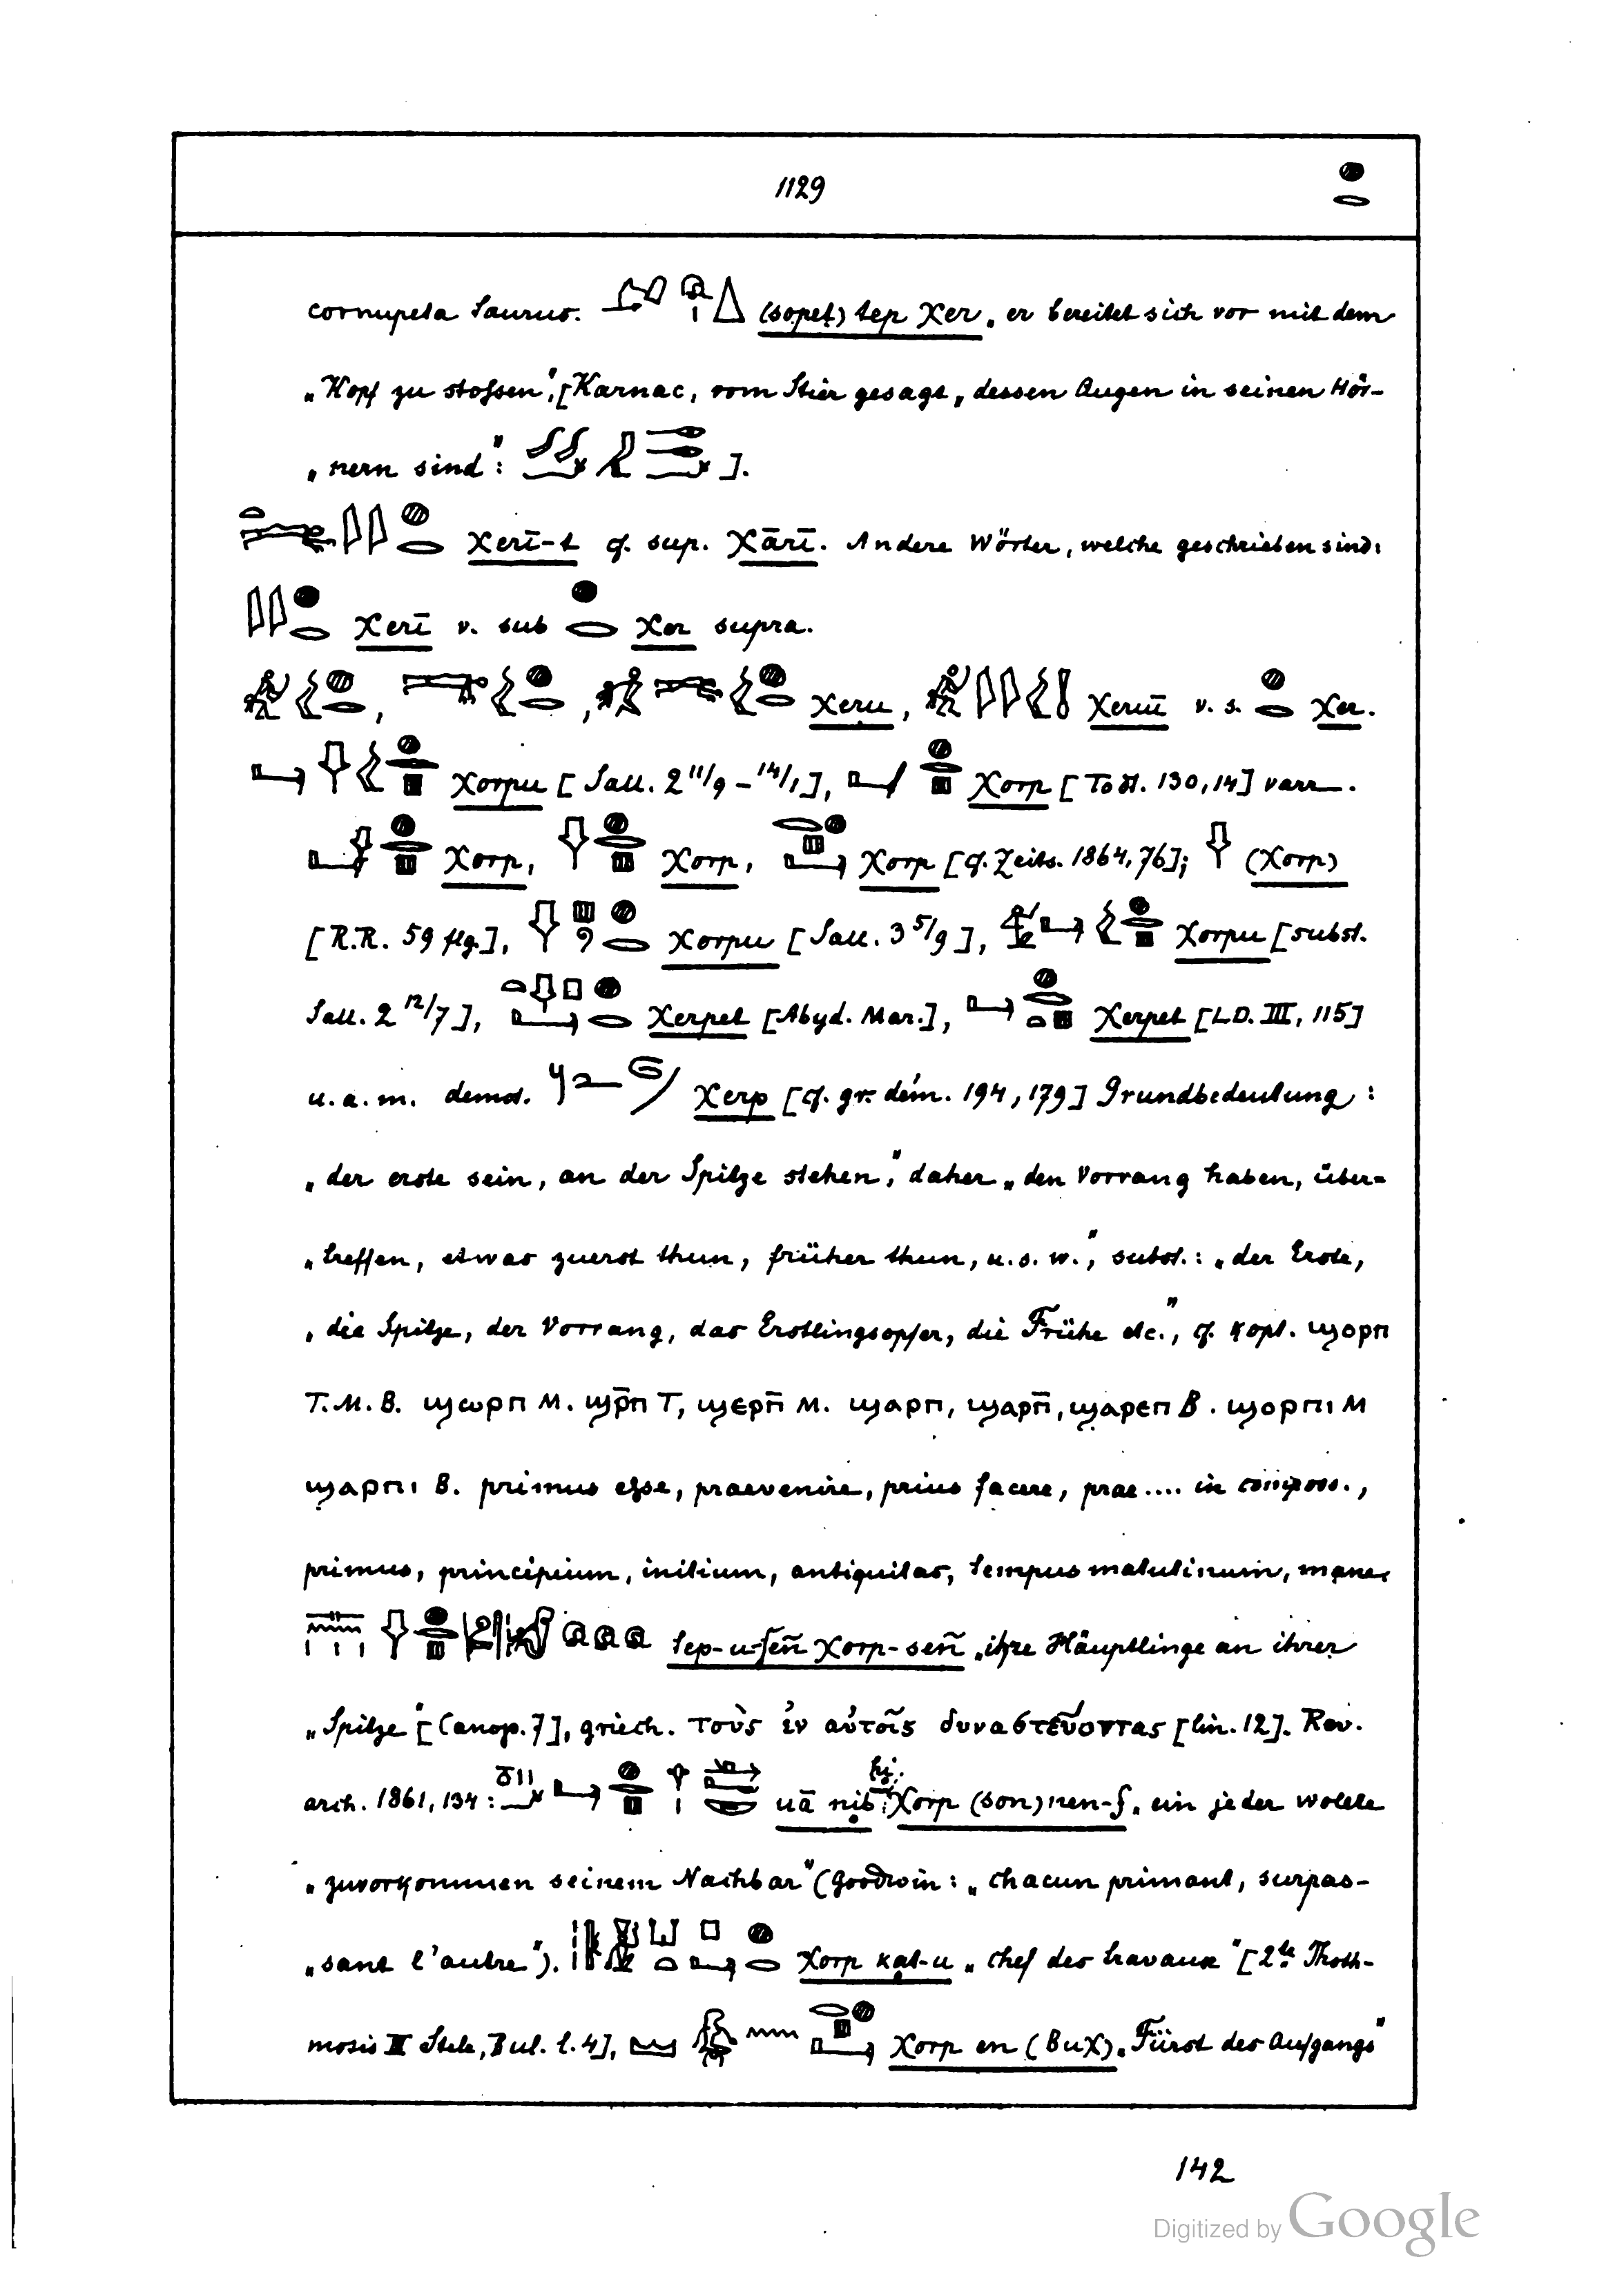 1129
cornupeta taurus. (sopeṭ) tep χer „er bereitet sich vor mit dem
„Kopf zu stossen", [Karnac, vom Stier gesagt „dessen Augen in seinen Hör-
„nern sind": ].
χerī-t cf. sup. χārī. Andere Wörter, welche geschrieben sind:
χerī v. sub χer supra.
, , χeru, χeruī v. s. χer.
χorpu [Sall. 2 11/9 – 14/1], χorp [Todt. 130,14] varr.
χorp, χorp, χorp [cf. Zeits. 1864, 76]; (χorp)
[R.R. 59 flg.], χorpu [Sall. 3 5/9], χorpu [subst.
Sall. 2 12/7], χerpet [Abyd. Mar.], χerpet [L.D. III, 115]
u. a. m. demot. χerp [cf. gr. dém. 194, 179] Grundbedeutung:
„der erste sein, an der Spitze stehen", daher „den Vorrang haben, über-
„treffen, etwas zuerst thun, früher thun, u. s. w.", subst.: „der Erste,
„die Spitze, der Vorrang, das Erstlingsopfer, die Frühe etc.", cf. kopt. ϣορπ
T. M. B. ϣωρπ M. ϣρ̄π T, ϣερπ̄ M. ϣαρπ, ϣαρπ̄, ϣαρεπ B. ϣορπι M
ϣαρπι B. primus esse, praevenire, prius facere, prae.... in composs.,
primus, principium, initium, antiquitas, tempus matutinum, mane.
tep-u-sen̄ χorp-sen̄ „ihre Häuptlinge an ihrer
„Spitze" [Canop. 7], griech. τοὺς ἐν αὐτοῖς δυναστεύοντας [lin. 12]. Rev.
arch. 1861, 134: uā nib ḥi χorp (son)nen-f „ein jeder wollte
„zuvorkommen seinem Nachbar" (Goodwin: „chacun primant, surpas-
„sant l'autre"). χorp kat-u „chef des travaux" [2te Thoth-
mosis III Stele, Bul. l. 4], χorp en (Buχ) „Fürst des Aufgangs"
142
Digitized by Google